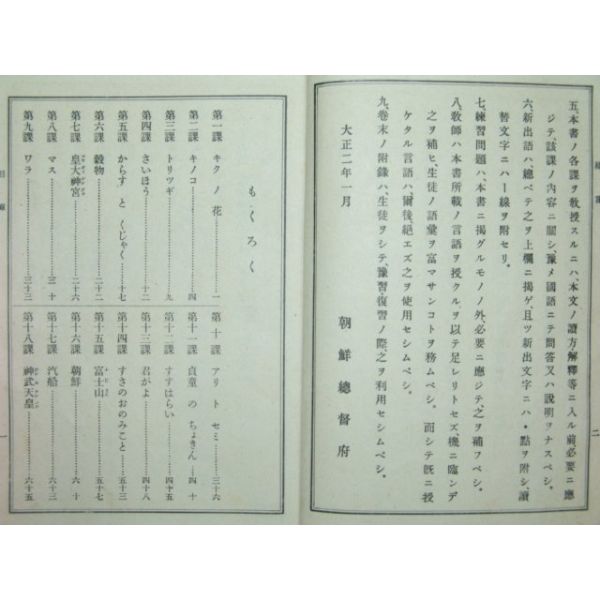 五、本書ノ各課ヲ敎授スルニハ、本文ノ讀方解釋等ニ入ル前、必要ニ應
ジテ、該課ノ內容ニ關シ、豫メ國語ニテ問答又ハ說明ヲナスベシ。
六、新出語ハ、總ベテ之ヲ上欄ニ揭ゲ、且ツ新出文字ニハ・點ヲ附シ、讀
替文字ニハ—線ヲ附セリ。
七、練習問題ハ、本書ニ揭グルモノノ外、必要ニ應ジテ、之ヲ補フベシ。
八、敎師ハ本書所載ノ言語ヲ授クルヲ以テ足レリトセズ、機ニ臨ンデ
之ヲ補ヒ、生徒ノ語彙ヲ富マサンコトヲ務ムベシ。而シテ旣ニ授
ケタル言語ハ、爾後、絕エズ之ヲ使用セシムベシ。
九、卷末ノ附錄ハ、生徒ヲシテ、豫習・復習ノ際、之ヲ利用セシムベシ。
大正二年一月
朝鮮總督府
二
もくろく
第一課 キクノ花 一
第二課 キノコ 四
第三課 トリツギ 九
第四課 さいほう 十二
第五課 からすとくじゃく 十七
第六課 穀物 二十二
第七課 皇大神宮 二十六
第八課 マス 三十
第九課 ワラ 三十三
第十課 アリトセミ 三十六
第十一課 貞童のちょきん 四十
第十二課 すすはらい 四十五
第十三課 君がよ 四十八
第十四課 すさのおのみこと 五十三
第十五課 富士山 五十七
第十六課 朝鮮 六十
第十七課 汽船 六十三
第十八課 神武天皇 六十五
目錄
一